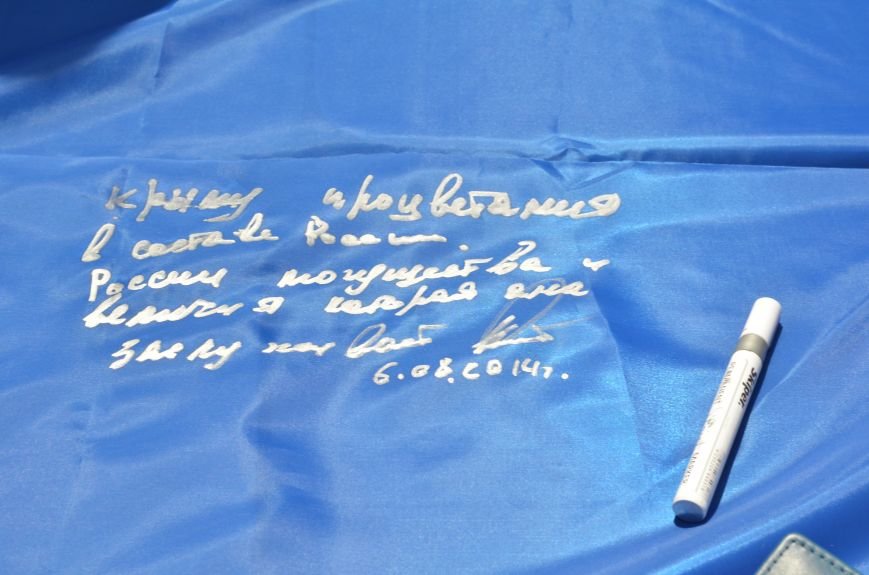 Крыму процветания
в составе России.
России могущества и
величия которая она
заслуживает
6.08.2014г.
Skiper